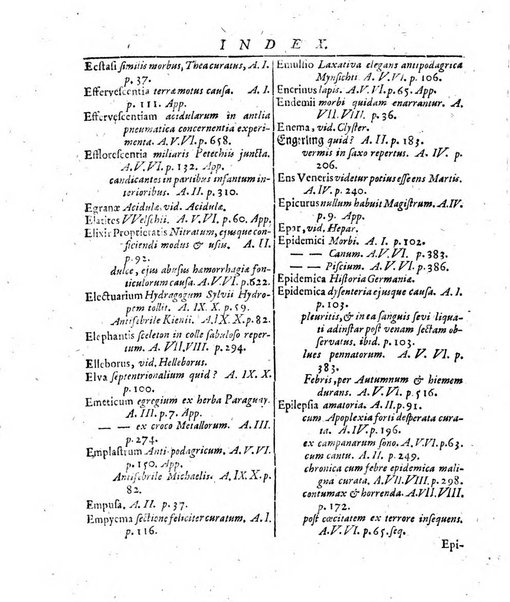 INDEX.
Ecstasi similis morbus, Thea curatus, A. I.
p. 37.
Effervescentia terræ motus causa. A. I.
p. 111. App.
Effervescentiam acidularum in antlia
pneumatica concernentia experi-
menta. A. V. VI. p. 658.
Efflorescentia miliaris Petechiis juncta.
A. V. VI. p. 132. App.
candicantes in partibus infantum in-
ferioribus. A. II. p. 310.
Egranæ Acidulæ. vid. Acidulæ.
Elatites VVelschii. A. V. VI. p. 60. App.
Elixir Proprietatis Nitratum, ejusque con-
ficiendi modus & usus. A. II.
p. 92.
dulce, ejus abusus hæmorrhagiæ fon-
ticulorum causa. A. V. VI. p. 622.
Electuarium Hydragogum Sylvii Hydro-
pem tollit. A. IX. X. p. 59.
Antifebrile Kienii. A. IX. X. p. 82.
Elephantis sceleton in colle sabuloso reper-
tum. A. VII. VIII. p. 294.
Elleborus, vid. Helleborus.
Elva septentrionalium quid? A. IX. X.
p. 100.
Emeticum egregium ex herba Paraguay.
A. III. p. 7. App.
— — ex croco Metallorum. A. III.
p. 274.
Emplastrum Anti-podagricum. A. V. VI.
p. 150. App.
Antifebrile Michaelis. A. IX. X. p.
82.
Empusa. A. II. p. 37.
Empyema sectione feliciter curatum. A. I.
p. 116.
Emulsio Laxativa elegans antipodagrica
Mynsichti. A. V. VI. p. 106.
Encrinus lapis. A. V. VI. p. 65. App.
Endemii morbi quidam enarrantur. A.
VII. VIII. p. 36.
Enema, vid. Clyster.
Engerling quid? A. II. p. 183.
vermis in saxo repertus. A. IV. p.
206.
Ens Veneris videtur potius esse ens Martis.
A. IV. p. 240.
Epicurus nullum habuit Magistrum. A. IV.
p. 9. App.
Epar, vid. Hepar.
Epidemici Morbi. A. I. p. 102.
— — Canum. A. V. VI. p. 383.
— — Piscium. A. V. VI. p. 386.
Epidemica Historia Germaniæ.
Epidemica dysenteria ejusque causa. A. I.
p. 103.
pleuritis, & in ea sanguis sevi liqua-
ti adinstar post venam sectam ob-
servatus. ibid. p. 103.
lues pennatorum. A. V. VI. p.
383.
Febris, per Autumnum & hiemem
durans. A. V. VI. p. 516.
Epilepsia amatoria. A. II. p. 91.
cum Apoplexia forti desperata cura-
ta. A. IV. p. 196.
ex campanarum sono. A. V. VI. p. 63.
cum cantu. A. II. p. 249.
chronica cum febre epidemica mali-
gna curata. A. VII. VIII. p. 298.
contumax & horrenda. A. VII. VIII.
p. 172.
post cœcitatem ex terrore insequens.
A. V. VI. p. 65. seq.
Epi-